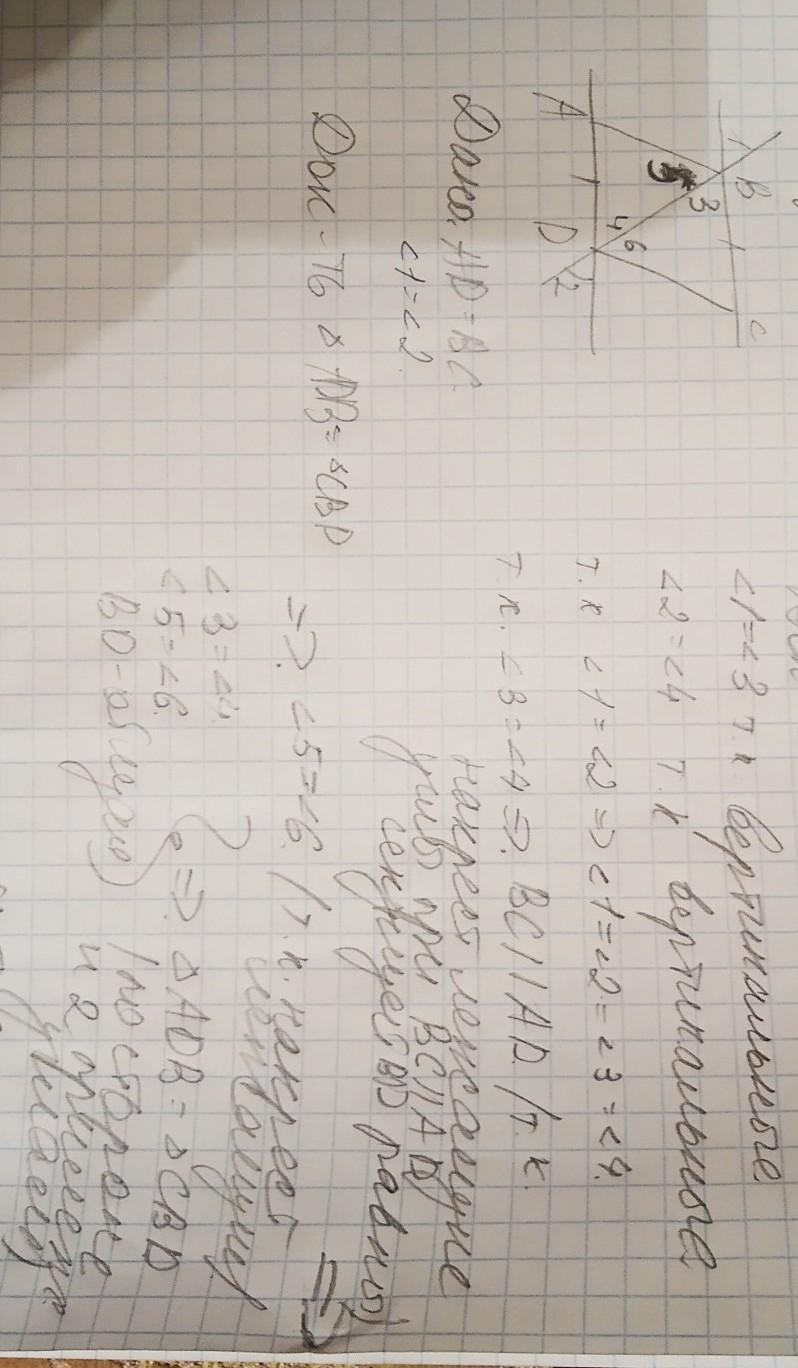 1 B C
3
5
4 6
A D 2
Дано: AD = BC
<1=<2.
Док-ть ▵ ADB = ▵CBD
<1=<3 т.к вертикальные
<2=<4 т.к вертикальные
т.к <1=<2 => <1=<2=<3=<4.
т.к. <3=<4 =>. BC||AD. /т.к.
накрест лежащие
углы при BC||AD
секущей BD равны)
=>. <5=<6. /т.к. накрест
лежащие)
=>
<3=<4.
<5=<6.
BD-общая) => ▵ADB = ▵CBD
/по стороне
и 2 прилеж.
углам